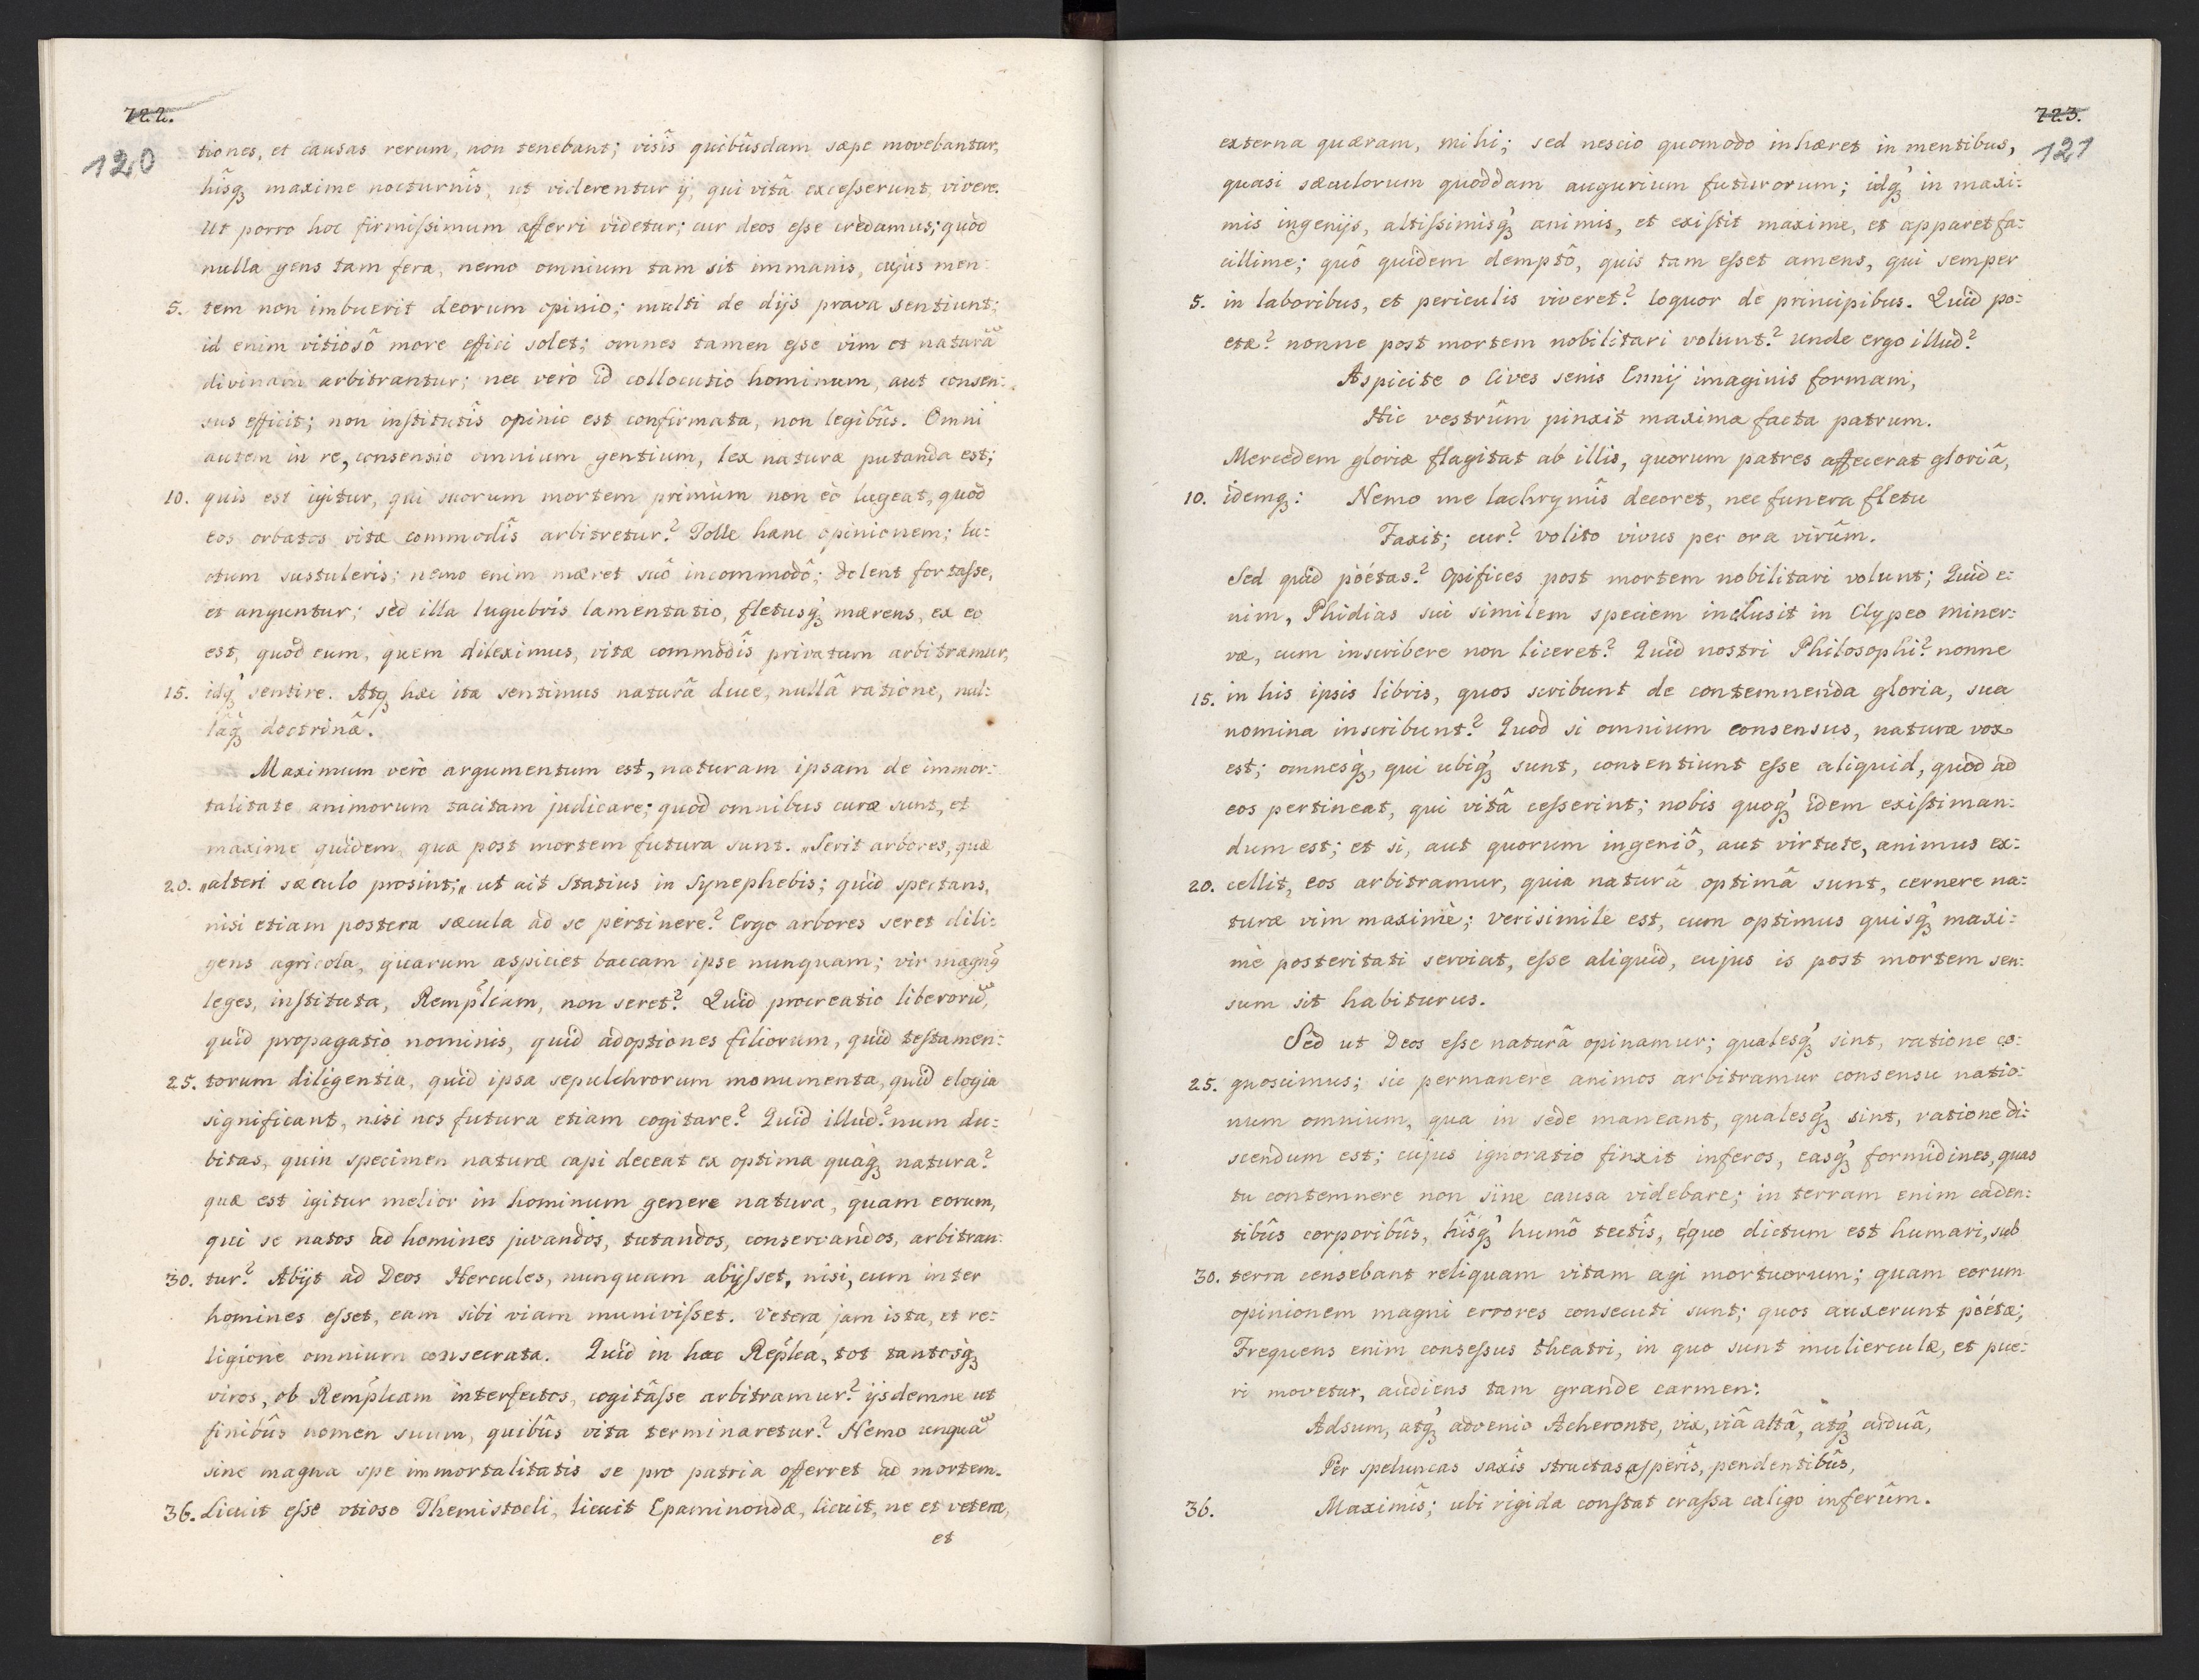 722.
120
tiones, et causas rerum, non tenebant; visîs quibûsdam sæpe movebantur,
hîsq3 maxime nocturnîs, ut viderentur ij, qui vitâ excesserunt, vivere.
Ut porro hoc firmissimum afferri videtur; cur deos esse credamus; quòd
nulla gens tam fera, nemo omnium tam sit immanis, cujus men:
5. tem non imbuerit deorum opinio; multi de dijs prava sentiunt;
id enim vitiosô more effici solet; omnes tamen esse vim et naturã
divinam arbitrantur; nec verò id collocutio hominum, aut consen:
sus efficit; non institutîs opinio est confirmata, non legibûs. Omni
autem in re, consensio omnium gentium, lex naturæ putanda est;
10. quis est igitur, qui suorum mortem primùm non eò lugeat, quòd
eos orbatos vitæ commodîs arbitretur? Tolle hanc opinionem; lu:
ctum sustuleris; nemo enim mæret suô incommodô; dolent fortasse,
et anguntur; sed illa lugubris lamentatio, fletusq3 mærens, ex eo
est, quòd eum, quem dileximus, vitæ commodîs privatum arbitramur,
15. idq3 sentire. Atq3 hæc ita sentimus naturâ duce, nullâ ratione, nul:
lâq3 doctrinâ.
Maximum verò argumentum est, naturam ipsam de immor:
talitate animorum tacitam judicare; quòd omnibus curæ sunt, et
maxime quidem, quæ post mortem futura sunt. „Serit arbores, quæ
20. „alteri sæculo prosint;„ ut ait Statius in Synephebis; quid spectans,
nisi etiam postera sæcula ad se pertinere? Ergo arbores seret dili:
gens agricola, quarum aspiciet baccam ipse nunquam; vir magn9
leges, instituta, Remplcam, non seret? Quid procreatio liberorũ,
quid propagatio nominis, quid adoptiones filiorum, quid testamen:
25. torum diligentia, quid ipsa sepulchrorum monumenta, quid elogia
significant, nisi nos futura etiam cogitare? Quid illud? num du:
bitas, quin specimen naturæ capi deceat ex optima quaq3 natura?
quæ est igitur melior in hominum genere natura, quam eorum,
qui se natos ad homines juvandos, tutandos, conservandos, arbitran:
30. tur? Abijt ad Deos Hercules, nunquam abijsset, nisi, cum inter
homines esset, eam sibi viam munivisset. Vetera jam ista, et re:
ligione omnium consecrata. Quid in hac Replca, tot tantosq3
viros, ob Remplcam interfectos, cogitâsse arbitramur? ijsdemne ut
finibûs nomen suum, quibûs vita terminaretur? Nemo unquã
sine magna spe immortalitatis se pro patria offerret ad mortem.
36. Licuit esse otioso Themistocli, licuit Epaminondæ, licuit, ne et vetera,
et
723.
121
externa quæram, mihi; sed nescio quomodo inhæret in mentibus,
quasi sæculorum quoddam augurium futurorum; idq3 in maxi:
mis ingenijs, altissimisq3 animis, et existit maxime, et apparet fa:
cillime; quô quidem demptô, quis tam esset amens, qui semper
5. in laboribus, et periculis viveret? loquor de principibus. Quid po:
etæ? nonne post mortem nobilitari volunt? Unde ergo illud?
Aspicite o Cives senis Ennij imaginis formam,
Hic vestrûm pinxit maxima facta patrum.
Mercedem gloriæ flagitat ab illis, quorum patres affecerat gloriâ,
10. idemq3: Nemo me lachrymîs decoret, nec funera fletu
Faxit; cur? volito vivus per ora virûm.
Sed quid pöétas? Opifices post mortem nobilitari volunt; Quid e:
nim, Phidias sui similem speciem inclusit in Clypeo Miner:
væ, cum inscribere non liceret? Quid nostri Philosophi? nonne
15. in his ipsis libris, quos scribunt de contemnenda gloria, sua
nomina inscribunt? Quòd si omnium consensus, naturæ vox
est; omnesq3, qui ubiq3 sunt, consentiunt esse aliquid, quod ad
eos pertineat, qui vitâ cesserint; nobis quoq3 idem existiman:
dum est; et si, aut quorum ingeniô, aut virtute, animus ex:
20. cellit, eos arbitramur, quia naturâ optimâ sunt, cernere na:
turæ vim maximè; verisimile est, cum optimus quisq3 maxi:
mè posteritati serviat, esse aliquid, cujus is post mortem sen:
sum sit habiturus.
Sed ut Deos esse naturâ opinamur; qualesq3 sint, ratione co:
25. gnoscimus; sic permanere animos arbitramur consensu natio:
num omnium, qua in sede maneant, qualesq3 sint, ratione di:
scendum est; cujus ignoratio finxit inferos, easq3 formidines, quas
tu contemnere non sine causa videbare; in terram enim caden:
tibûs corporibûs, hîsq3 humô tectîs, è quo dictum est humari, sub
30. terra censebant reliquam vitam agi mortuorum; quam eorum
opinionem magni errores consecuti sunt; quos auxerunt pöétæ;
Frequens enim consessus theatri, in quo sunt mulierculæ, et pue:
ri movetur, audiens tam grande carmen:
Adsum, atq3 advenio Acheronte, vix, viâ altâ, atq3 arduâ,
Per speluncas saxîs structas asperîs, pendentibûs,
36. Maximîs; ubi rigida constat crassa caligo inferûm.